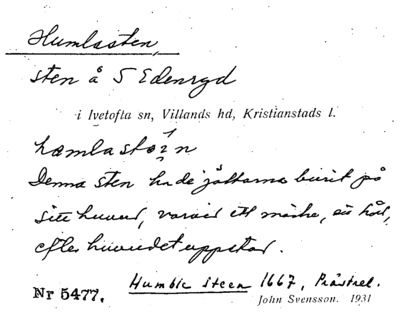 Humlasten,
sten å S Edenryd
i Ivetofta sn, Villands hd, Kristianstads l.
Denna sten hade jättarna burit på
sitt huvud, varvid ett märke, ett hål,
efter huvudet uppstod.
Humble steen 1667, Prästrel.
Nr 5477.
John Svensson. 1931